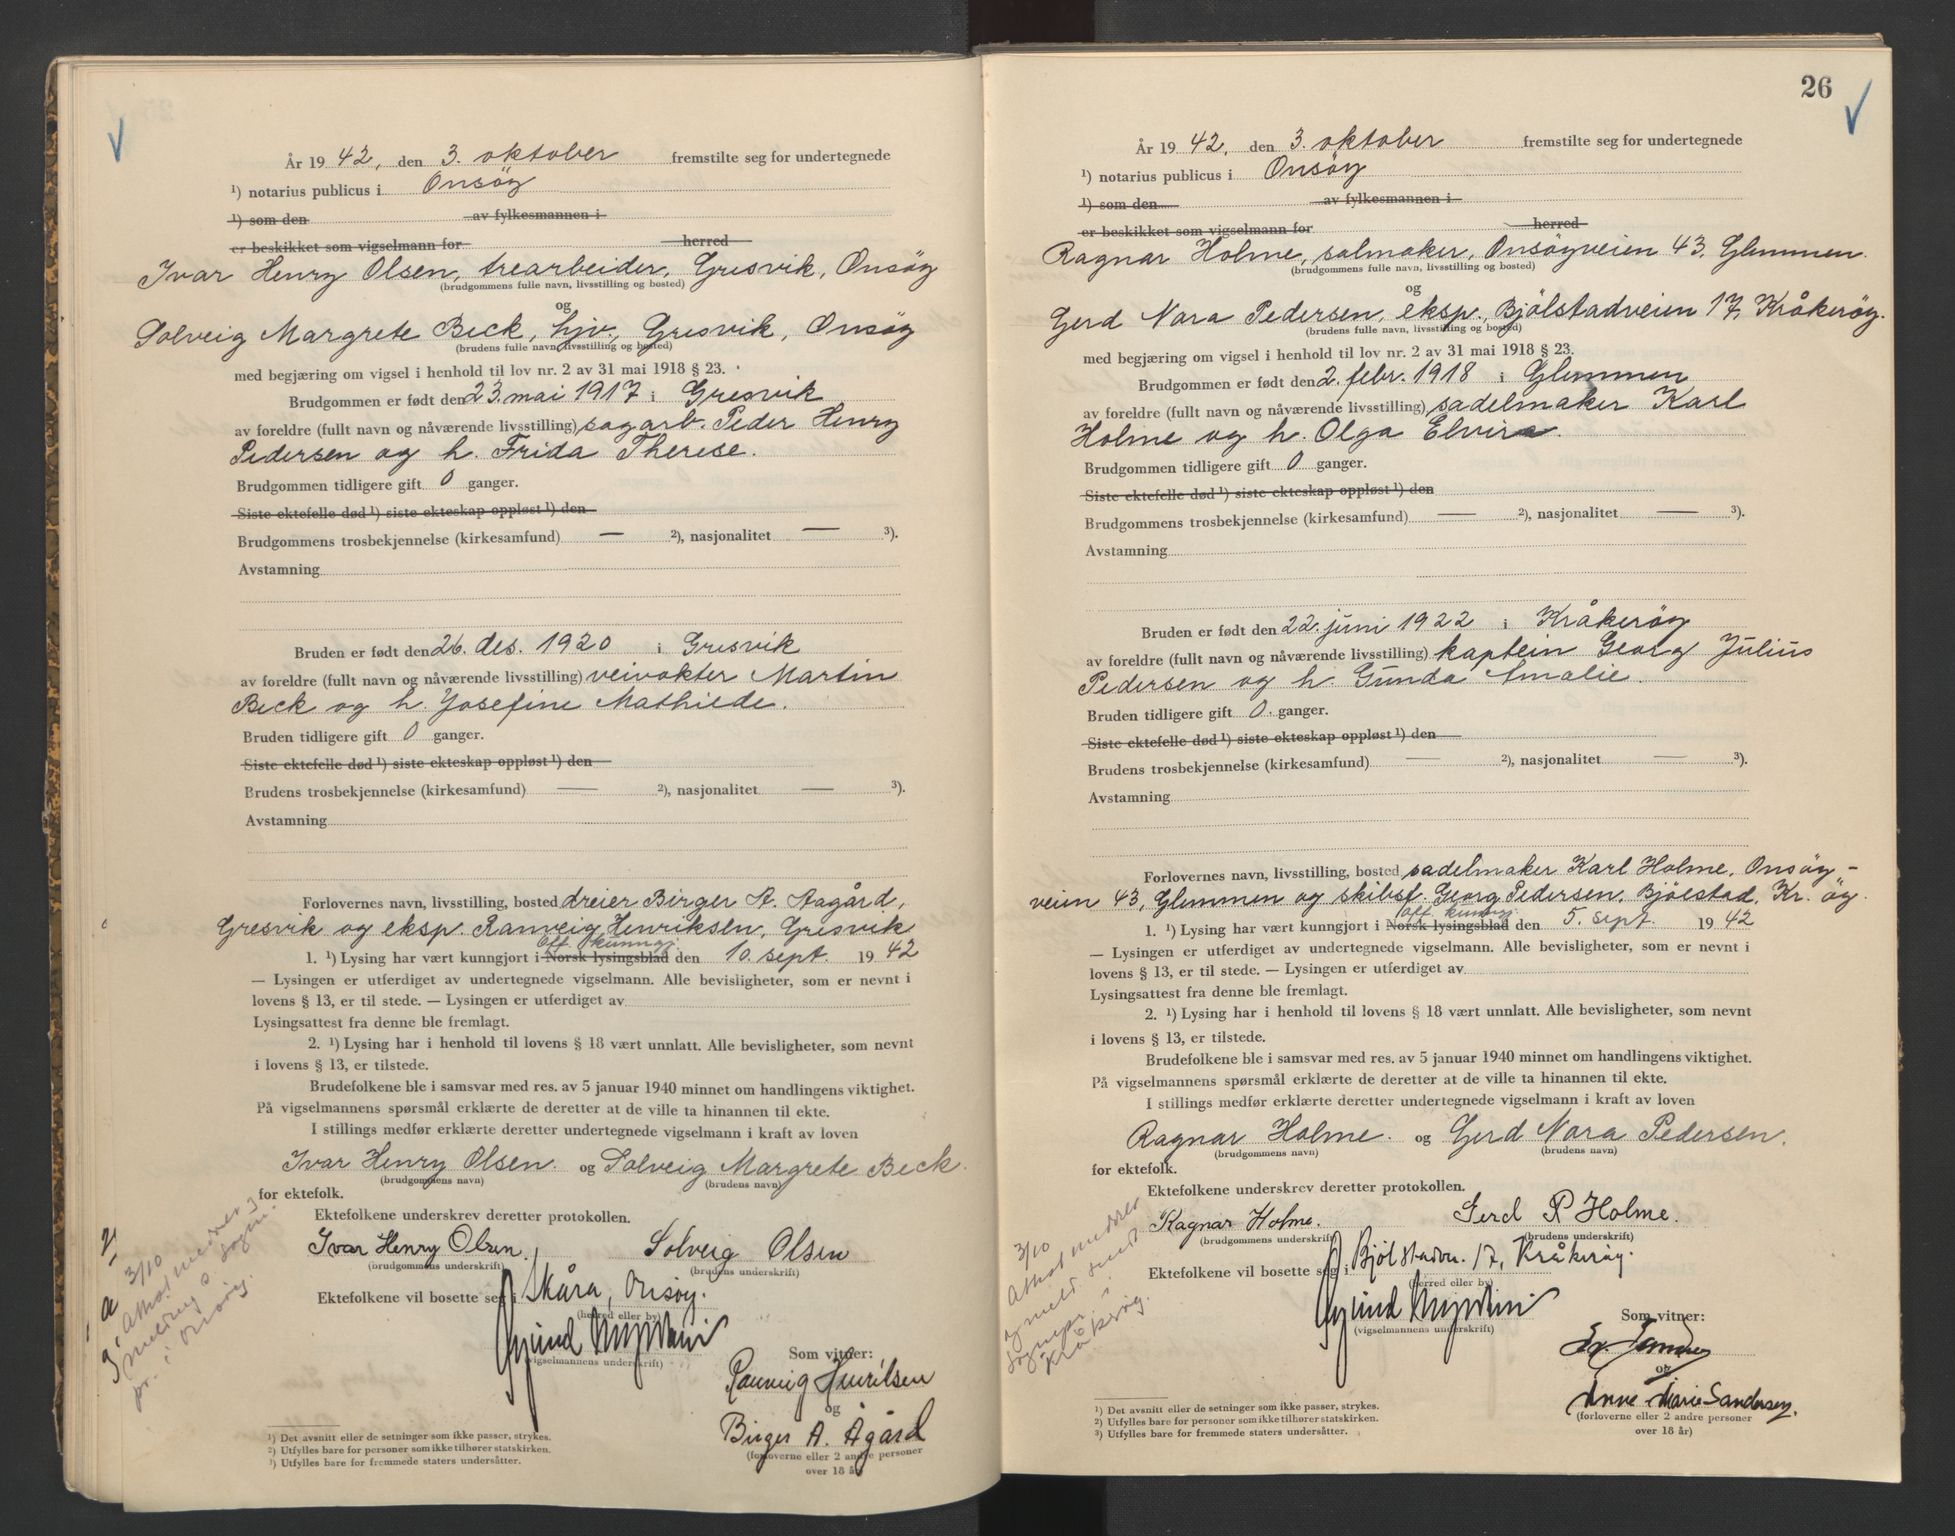 År 19 42, den 3. oktober fremstilte seg for undertegnede
¹) notarius publicus i Onsöy
¹) som den av fylkesmannen i
er beskikket som vigselmann for herred
Ivar Henry Olsen, trearbeider, Gresvik, Onsöy
(brudgommens fulle navn, livsstilling og bosted)
og
Solveig Margrete Beck, hjv., Gresvik, Onsöy
(brudens fulle navn, livsstilling og bosted)
med begjæring om vigsel i henhold til lov nr. 2 av 31 mai 1918 § 23.
Brudgommen er født den 23. mai 1917 i Gresvik
av foreldre (fullt navn og nåværende livsstilling) sagarb. Peder Henry
Pedersen og h. Frida Therese.
Brudgommen tidligere gift 0 ganger.
Siste ektefelle død ¹) siste ekteskap oppløst ¹) den
Brudgommens trosbekjennelse (kirkesamfund) — ²), nasjonalitet — ³).
Avstamning
Bruden er født den 26. des. 1920 i Gresvik
av foreldre (fullt navn og nåværende livsstilling) veivokter Martin
Beck og h. Josefine Mathilde.
Bruden tidligere gift 0 ganger.
Siste ektefelle død ¹) siste ekteskap oppløst ¹) den
Brudens trosbekjennelse (kirkesamfund) — ²), nasjonalitet — ³).
Avstamning
Forlovernes navn, livsstilling, bosted dreier Birger A. Aagård,
Gresvik og eksp. Ranveig Henriksen, Gresvik
Off. kunngj.
1. ¹) Lysing har vært kunngjort i Norsk lysingsblad den 10. sept. 19 42
— Lysingen er utferdiget av undertegnede vigselmann. Alle bevisligheter, som er nevnt i
lovens § 13, er til stede. — Lysingen er utferdiget av
Lysingsattest fra denne ble fremlagt.
2. ¹) Lysing har i henhold til lovens § 18 vært unnlatt. Alle bevisligheter, som nevnt
i lovens § 13, er tilstede.
Brudefolkene ble i samsvar med res. av 5 januar 1940 minnet om handlingens viktighet.
På vigselmannens spørsmål erklærte de deretter at de ville ta hinannen til ekte.
I stillings medfør erklærte deretter undertegnede vigselmann i kraft av loven
Ivar Henry Olsen. og Solveig Margrete Beck.
(brudgommens navn) (brudens navn)
for ektefolk.
Ektefolkene underskrev deretter protokollen.
Ivar Henry Olsen. Solveig Olsen
(brudgommens underskrift) (brudens underskrift)
Ektefolkene vil bosette seg i Skåra, Onsøy.
(herred eller by)
(vigselmannens underskrift)
Som vitner:
Ranveig Henriksen
og
Birger A. Ågård
(forloverne eller 2 andre personer
over 18 år)
3/10
¹) Det avsnitt eller de setninger som ikke passer, strykes.
²) Utfylles bare for personer som ikke tilhører statskirken.
³) Utfylles bare for fremmede staters undersåtter.
26
År 19 42, den 3. oktober fremstilte seg for undertegnede
¹) notarius publicus i Onsöy
¹) som den av fylkesmannen i
er beskikket som vigselmann for herred
Ragnar Holme, salmaker, Onsöyveien 43, Glemmen.
(brudgommens fulle navn, livsstilling og bosted)
og
Gerd Nora Pedersen, eksp., Bjölstadveien 17, Kråkeröy.
(brudens fulle navn, livsstilling og bosted)
med begjæring om vigsel i henhold til lov nr. 2 av 31 mai 1918 § 23.
Brudgommen er født den 2. febr. 1918 i Glemmen
av foreldre (fullt navn og nåværende livsstilling) sadelmaker Karl
Holme og h. Olga Elvira.
Brudgommen tidligere gift 0 ganger.
Siste ektefelle død ¹) siste ekteskap oppløst ¹) den
Brudgommens trosbekjennelse (kirkesamfund) — ²), nasjonalitet — ³).
Avstamning
Bruden er født den 22. juni 1922 i Kråkeröy
av foreldre (fullt navn og nåværende livsstilling) kaptein Georg Julius
Pedersen og h. Gunda Amalie.
Bruden tidligere gift 0. ganger.
Siste ektefelle død ¹) siste ekteskap oppløst ¹) den
Brudens trosbekjennelse (kirkesamfund) — ²), nasjonalitet — ³).
Avstamning
Forlovernes navn, livsstilling, bosted sadelmaker Karl Holme, Onsöy-
veien 43, Glemmen og skibsf. Georg Pedersen, Bjölstad, Kr. öy.
Off. kunngj.
1. ¹) Lysing har vært kunngjort i Norsk lysingsblad den 5. sept. 19 42
— Lysingen er utferdiget av undertegnede vigselmann. Alle bevisligheter, som er nevnt i
lovens § 13, er til stede. — Lysingen er utferdiget av
Lysingsattest fra denne ble fremlagt.
2. ¹) Lysing har i henhold til lovens § 18 vært unnlatt. Alle bevisligheter, som nevnt
i lovens § 13, er tilstede.
Brudefolkene ble i samsvar med res. av 5 januar 1940 minnet om handlingens viktighet.
På vigselmannens spørsmål erklærte de deretter at de ville ta hinannen til ekte.
I stillings medfør erklærte deretter undertegnede vigselmann i kraft av loven
Ragnar Holme. og Gerd Nora Pedersen.
(brudgommens navn) (brudens navn)
for ektefolk.
Ektefolkene underskrev deretter protokollen.
Ragnar Holme. Gerd P Holme.
(brudgommens underskrift) (brudens underskrift)
Ektefolkene vil bosette seg i Bjölstadvn. 17, Kråkeröy.
(herred eller by)
(vigselmannens underskrift)
Som vitner:
og
Anne Marie Sandersen.
(forloverne eller 2 andre personer
over 18 år)
3/10
Kråkerøy.
¹) Det avsnitt eller de setninger som ikke passer, strykes.
²) Utfylles bare for personer som ikke tilhører statskirken.
³) Utfylles bare for fremmede staters undersåtter.